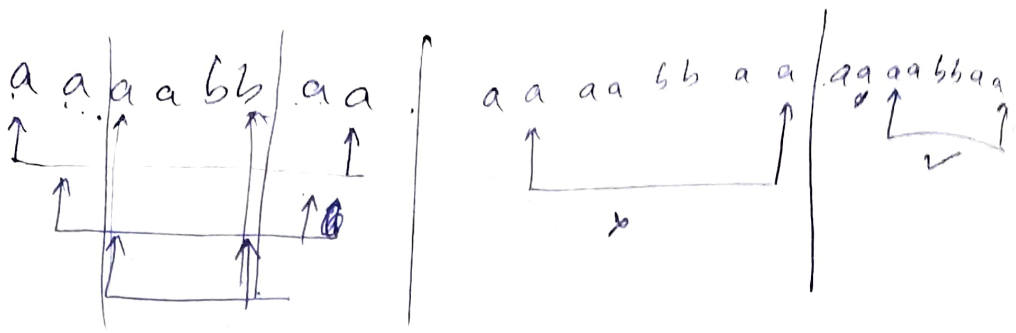 a a a a b b a a . a a a a b b a a a a a a b b a a